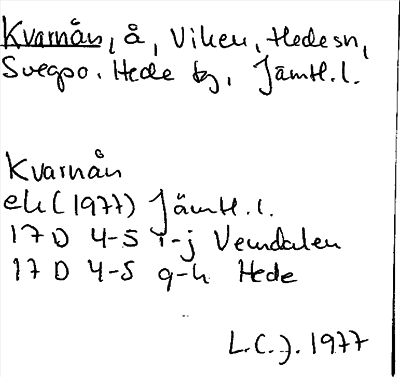 Kvarnån, å, Viken, Hedesn,
Svegpo. Hede tg, Jämtl. l.
Kvarnån
ek (1977) Jämtl. l.
17 D 4-5 i-j Vemdalen
17 D 4-5 g-h Hede
L.C.J. 1977